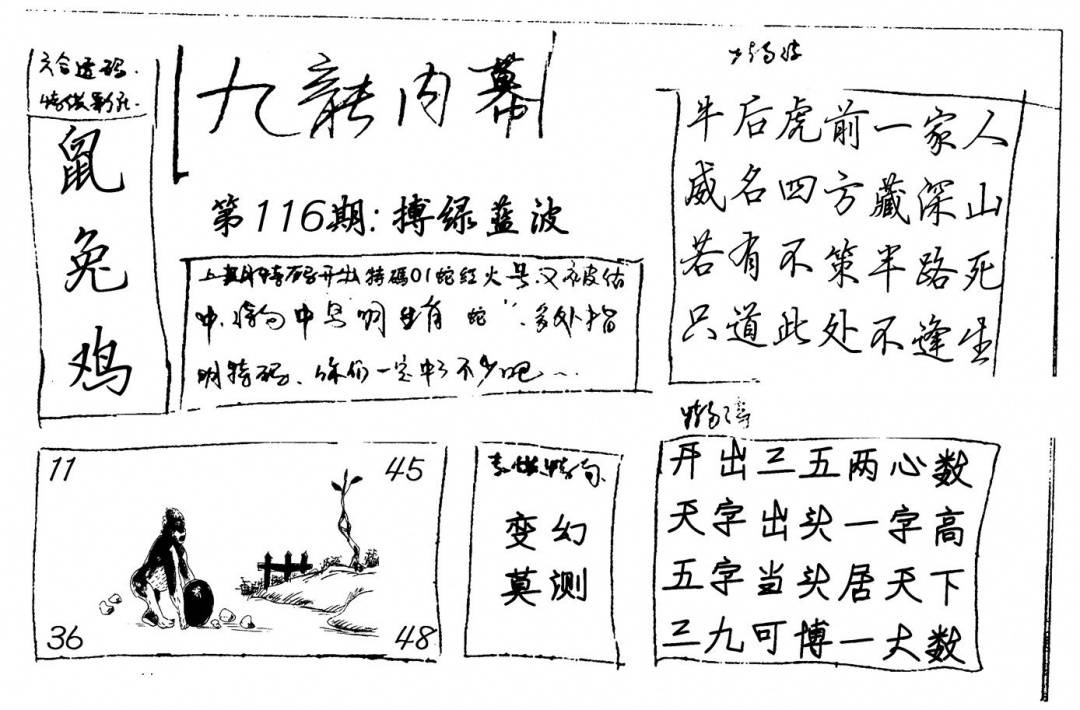 六合透码.
鼠
兔
鸡
九龍内幕
第116期:搏绿蓝波
上期特码开出特碼01蛇红火号.又被估
中.中号明生肖蛇".多处指
明特码.你们一定中了不少吧~
牛后虎前一家人
威名四方藏深山
若有不策半路死
只道此处不逢生
11
45
36
48
变幻
莫测
开出三五两心数
天字出头一字高
五字当头居天下
三九可博一大数